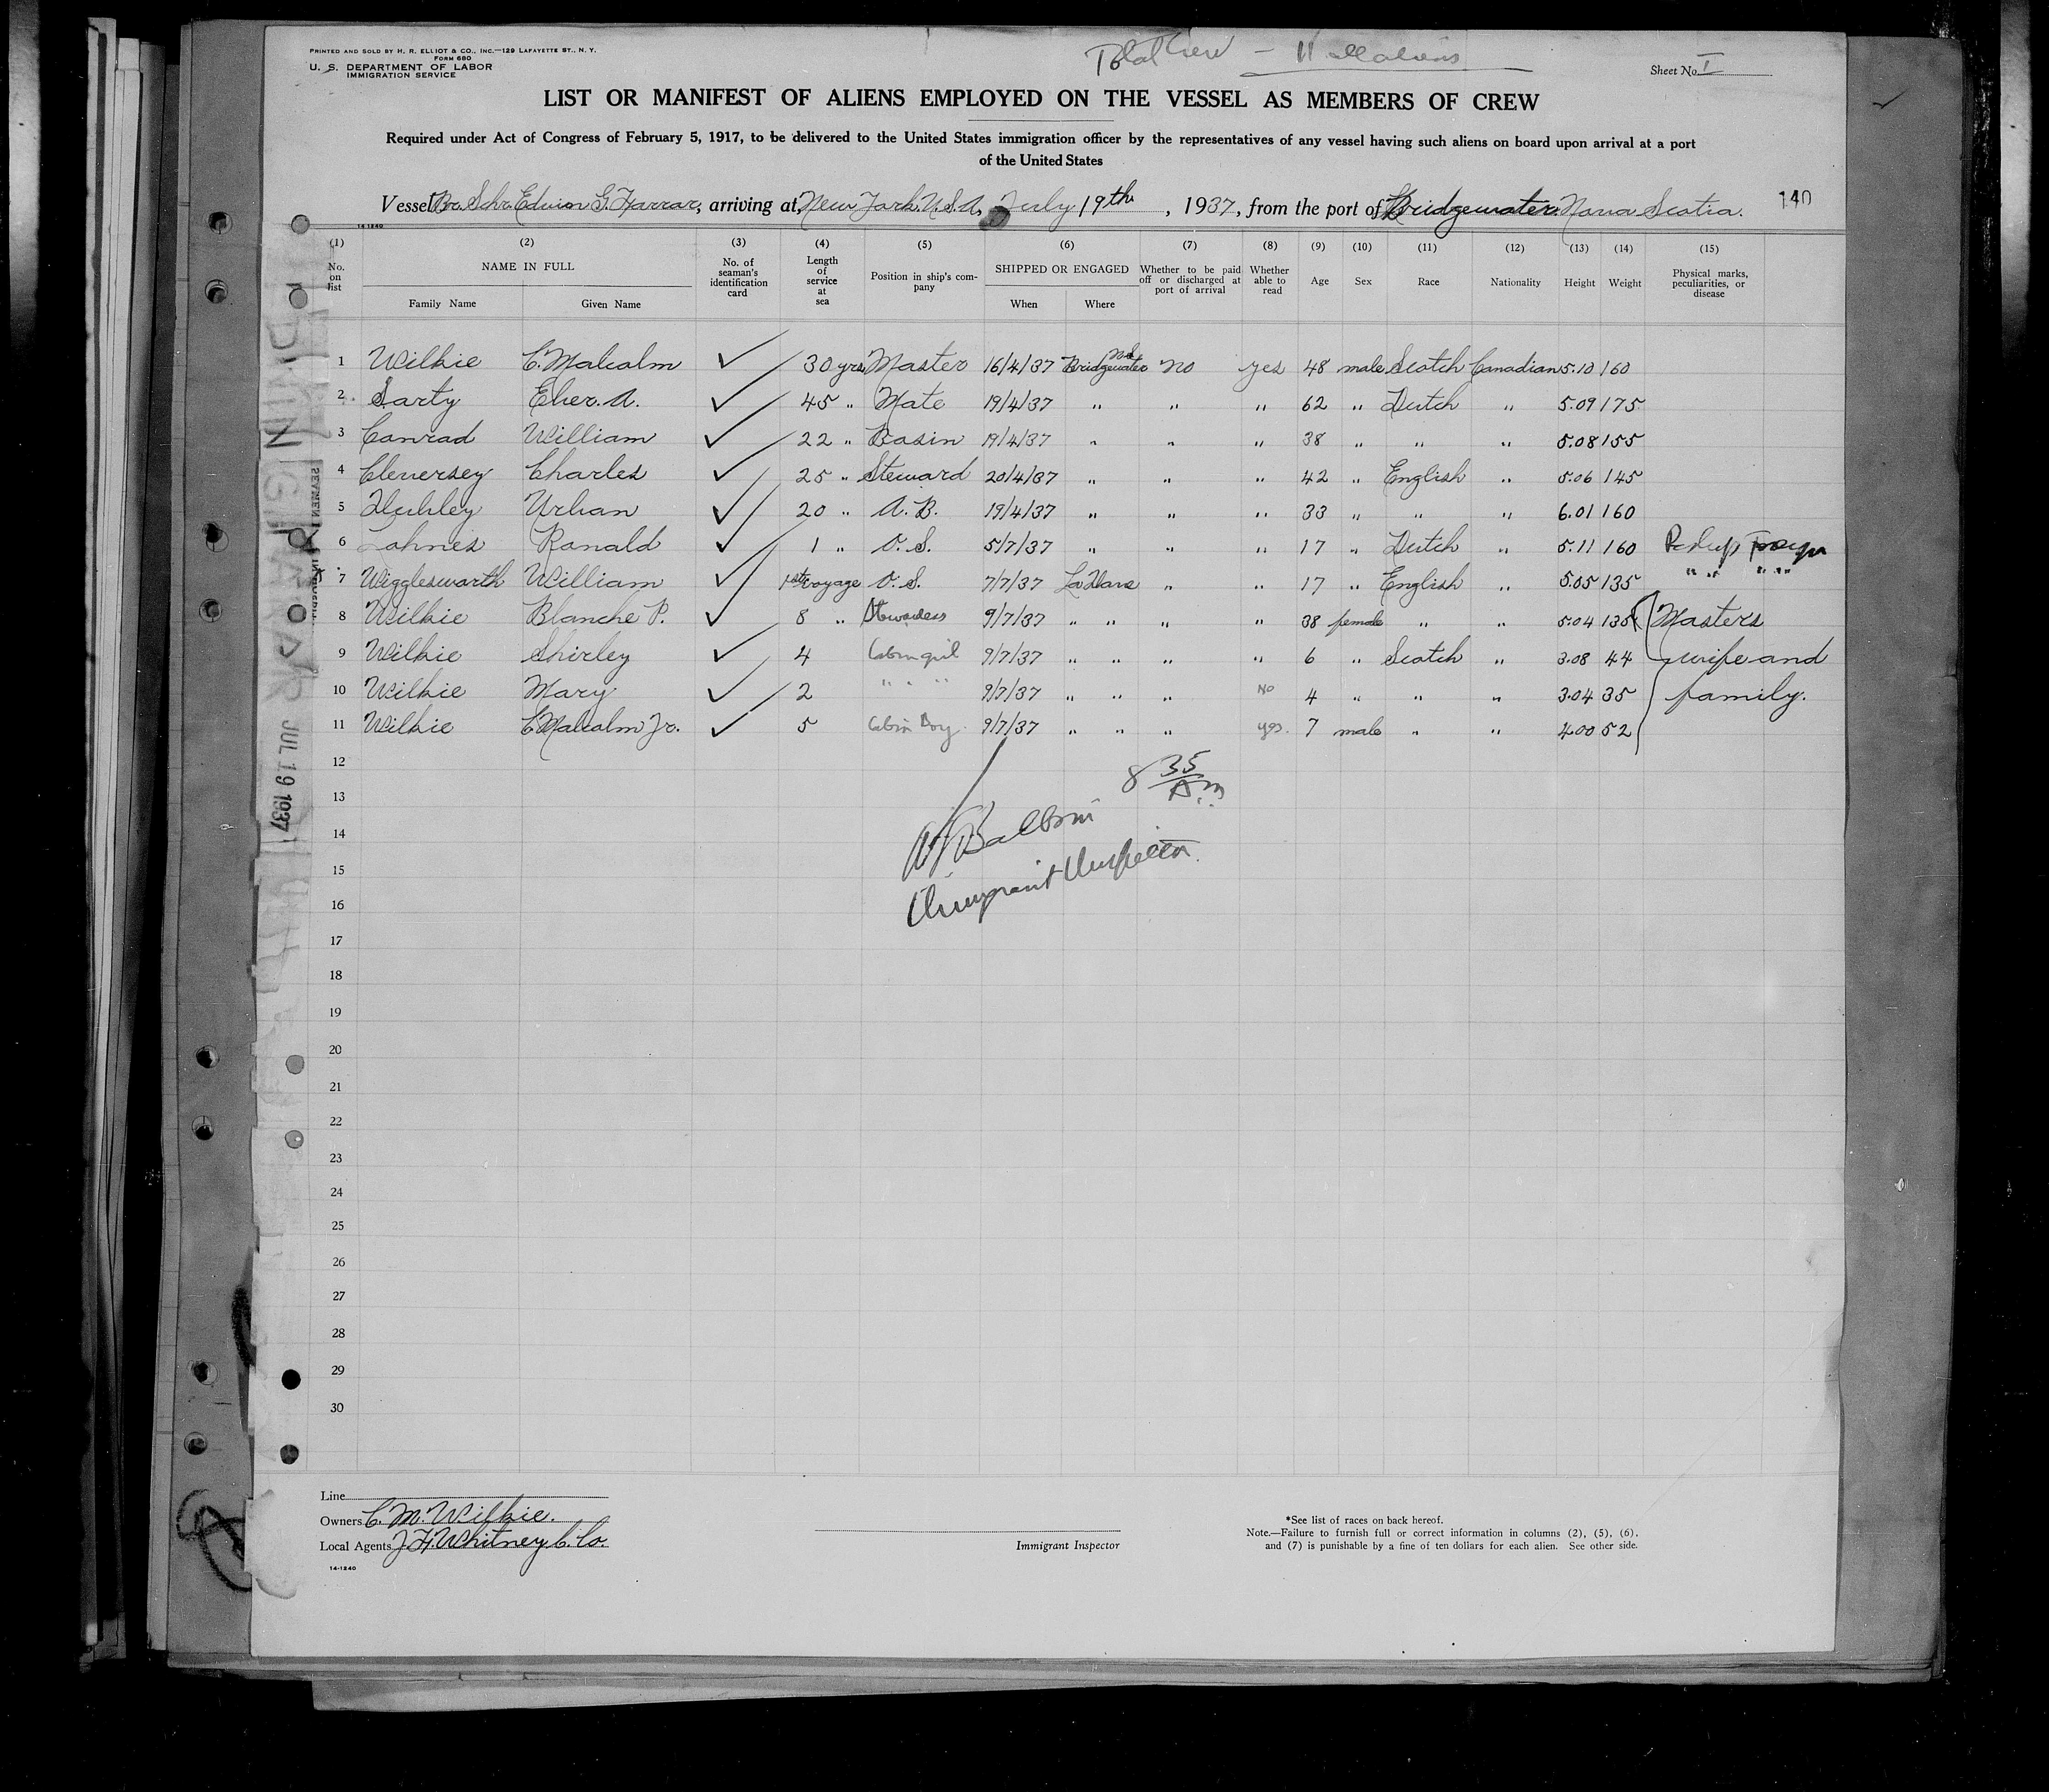 PRINTED AND SOLD BY H. R. ELLIOT & CO., INC.—129 LAFAYETTE ST., N. Y.
FORM 680
U. S. DEPARTMENT OF LABOR
IMMIGRATION SERVICE
Total Crew — 11 all aliens
Sheet No. I
LIST OR MANIFEST OF ALIENS EMPLOYED ON THE VESSEL AS MEMBERS OF CREW
Required under Act of Congress of February 5, 1917, to be delivered to the United States immigration officer by the representatives of any vessel having such aliens on board upon arrival at a port
of the United States
Vessel Br. Schr. Edwin G. Farrar, arriving at New York, U.S.A, July 19th, 1937, from the port of Bridgewater. Nova Scotia. 140
14-1240
(1) (2) (3) (4) (5) (6) (7) (8) (9) (10) (11) (12) (13) (14) (15)
No. on list NAME IN FULL Family Name Given Name No. of seaman's identification card Length of service at sea Position in ship's company SHIPPED OR ENGAGED When Where Whether to be paid off or discharged at port of arrival Whether able to read Age Sex Race Nationality Height Weight Physical marks, peculiarities, or disease
1 Wilkie C. Malcolm ✓ 30 yrs Master 16/4/37 Bridgewater N.S. No yes 48 male Scotch Canadian 5.10 160
2 Sarty Eber. A. ✓ 45 " Mate 19/4/37 " " " 62 " Dutch " 5.09 175
3 Conrad William ✓ 22 " Bosin 19/4/37 " " " 38 " " " 5.08 155
4 Clenersey Charles ✓ 25 " Steward 20/4/37 " " " 42 " English " 5.06 145
5 Huhley Urban ✓ 20 " A. B. 19/4/37 " " " 33 " " " 6.01 160
6 Lohnes Ronald ✓ 1 " O. S. 5/7/37 " " " 17 " Dutch " 5.11 160
7 Wigglesworth William ✓ 1st voyage O. S. 7/7/37 La Have " " 17 " English " 5.05 135 " " " "
8 Wilkie Blanche P. ✓ 8 " Stewardess 9/7/37 " " " " 38 female " " 5.04 135 Masters
9 Wilkie Shirley ✓ 4 Cabin girl 9/7/37 " " " " 6 " Scotch " 3.08 44 wife and
10 Wilkie Mary ✓ 2 " " " 9/7/37 " " " No 4 " " " 3.04 35 family.
11 Wilkie C. Malcolm Jr. ✓ 5 Cabin Boy 9/7/37 " " " yes. 7 male " " 4.00 52
12
8 35 A.m
13
14
15
Immigrant Inspector
16
17
18
19
20
21
22
23
24
25
26
27
28
29
30
JUL 19 1937
Line
Owners C. M. Wilkie.
Local Agents J. F. Whitney & Co.
14-1240
Immigrant Inspector
*See list of races on back hereof.
Note.—Failure to furnish full or correct information in columns (2), (5), (6),
and (7) is punishable by a fine of ten dollars for each alien. See other side.